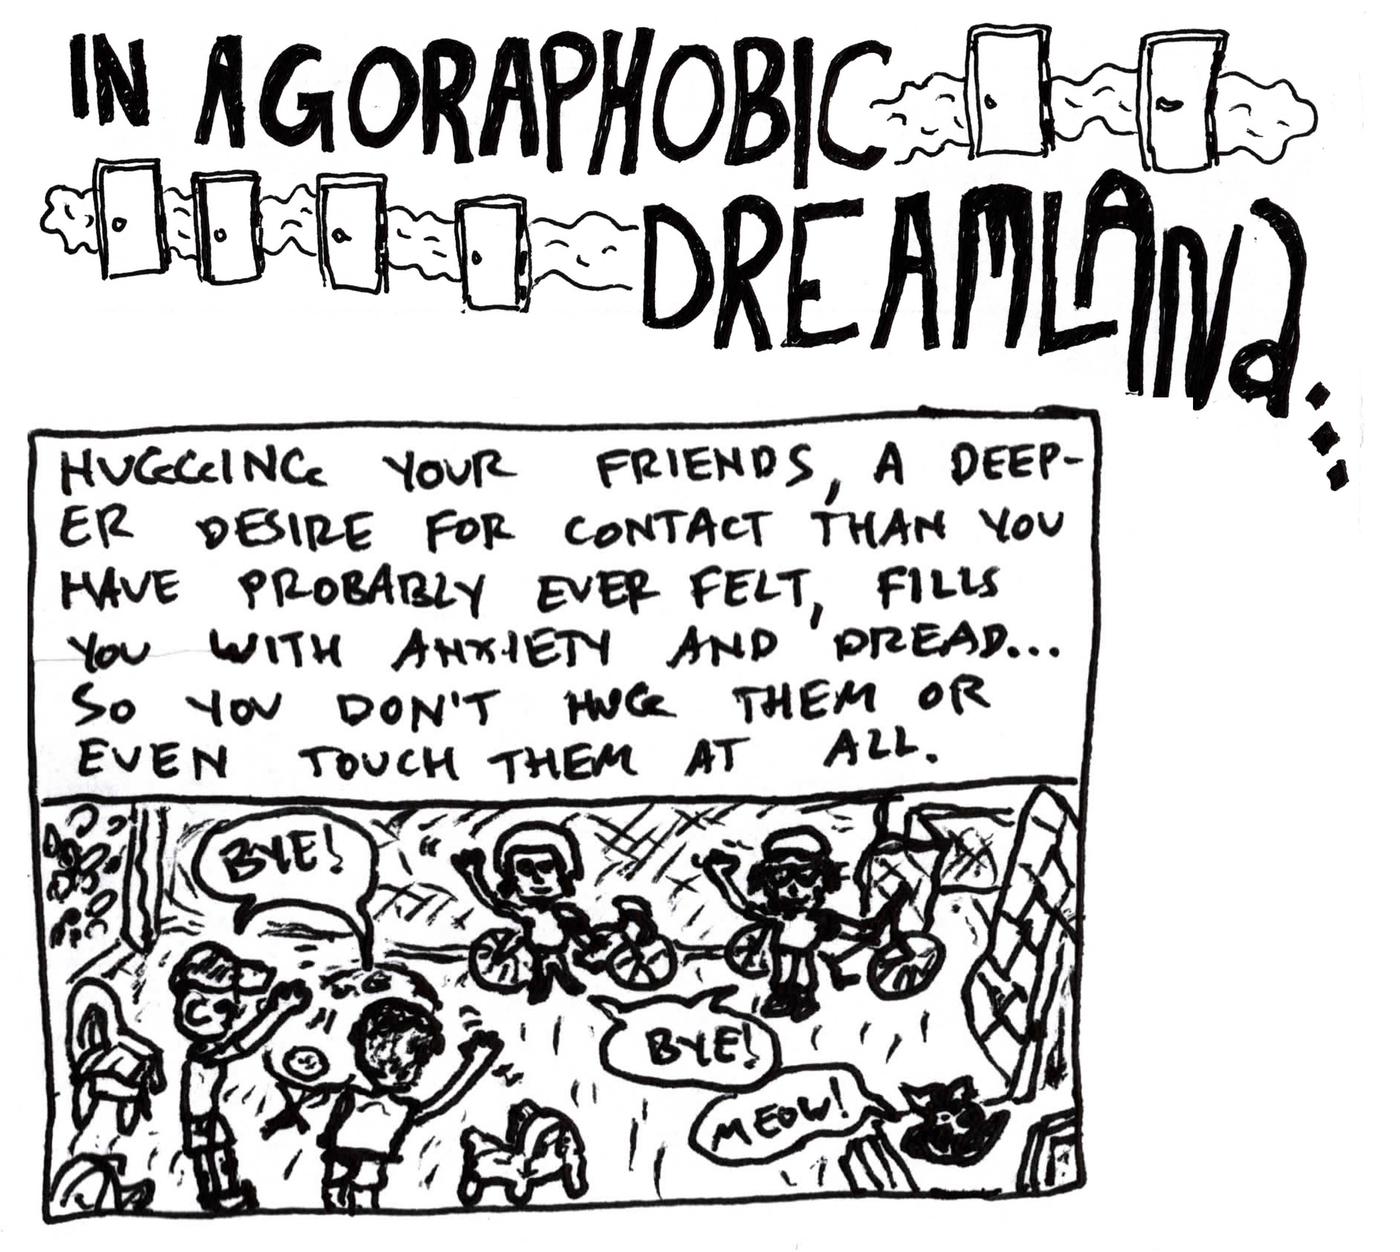 IN AGORAPHOBIC
DREAMLAND...
HUGGING YOUR FRIENDS, A DEEP-
ER DESIRE FOR CONTACT THAN YOU
HAVE PROBABLY EVER FELT, FILLS
YOU WITH ANXIETY AND DREAD...
SO YOU DON'T HUG THEM OR
EVEN TOUCH THEM AT ALL.
BYE!
BYE!
MEOW!